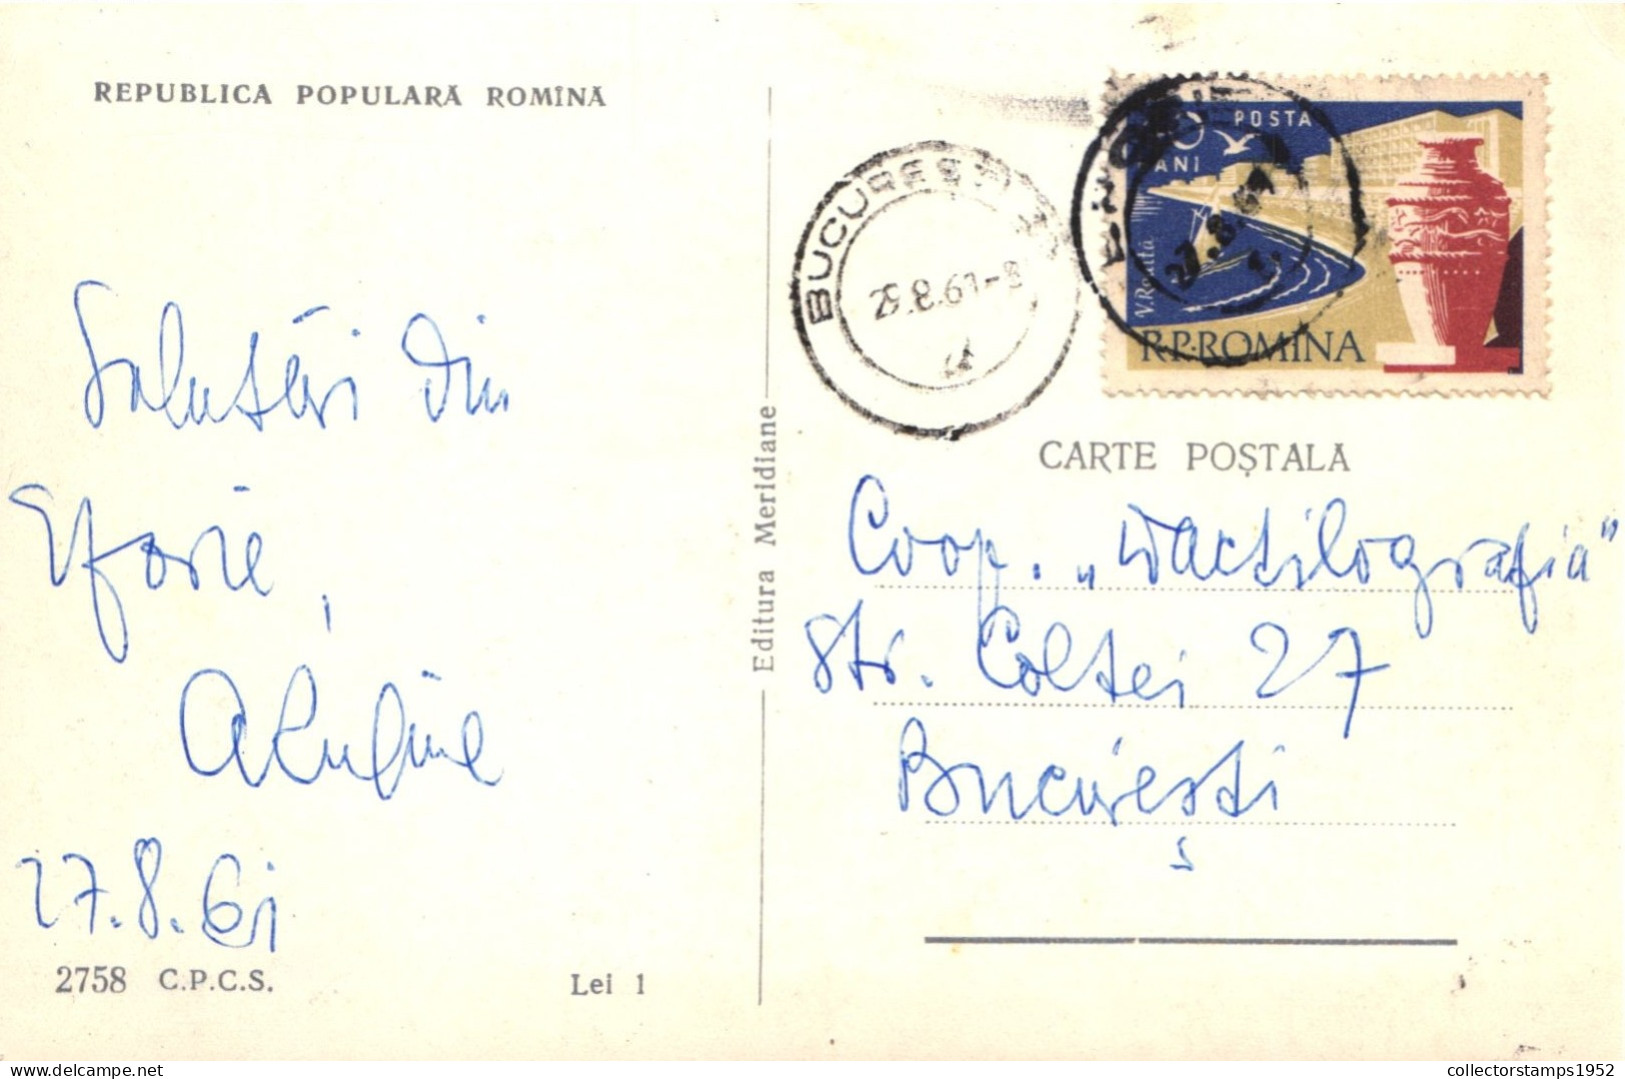 REPUBLICA POPULARĂ ROMÎNĂ
Salutări din
Eforie,
27.8.61
2758 C.P.C.S.
Lei 1
Editura Meridiane
BUCUREȘTI
29.8.61-8
POSTA
ANI
V. Roată
27.8.61
R.P.ROMÎNA
CARTE POȘTALĂ
Coop. „Dactilografia"
Str. Colței 27
București
collectorstamps1952